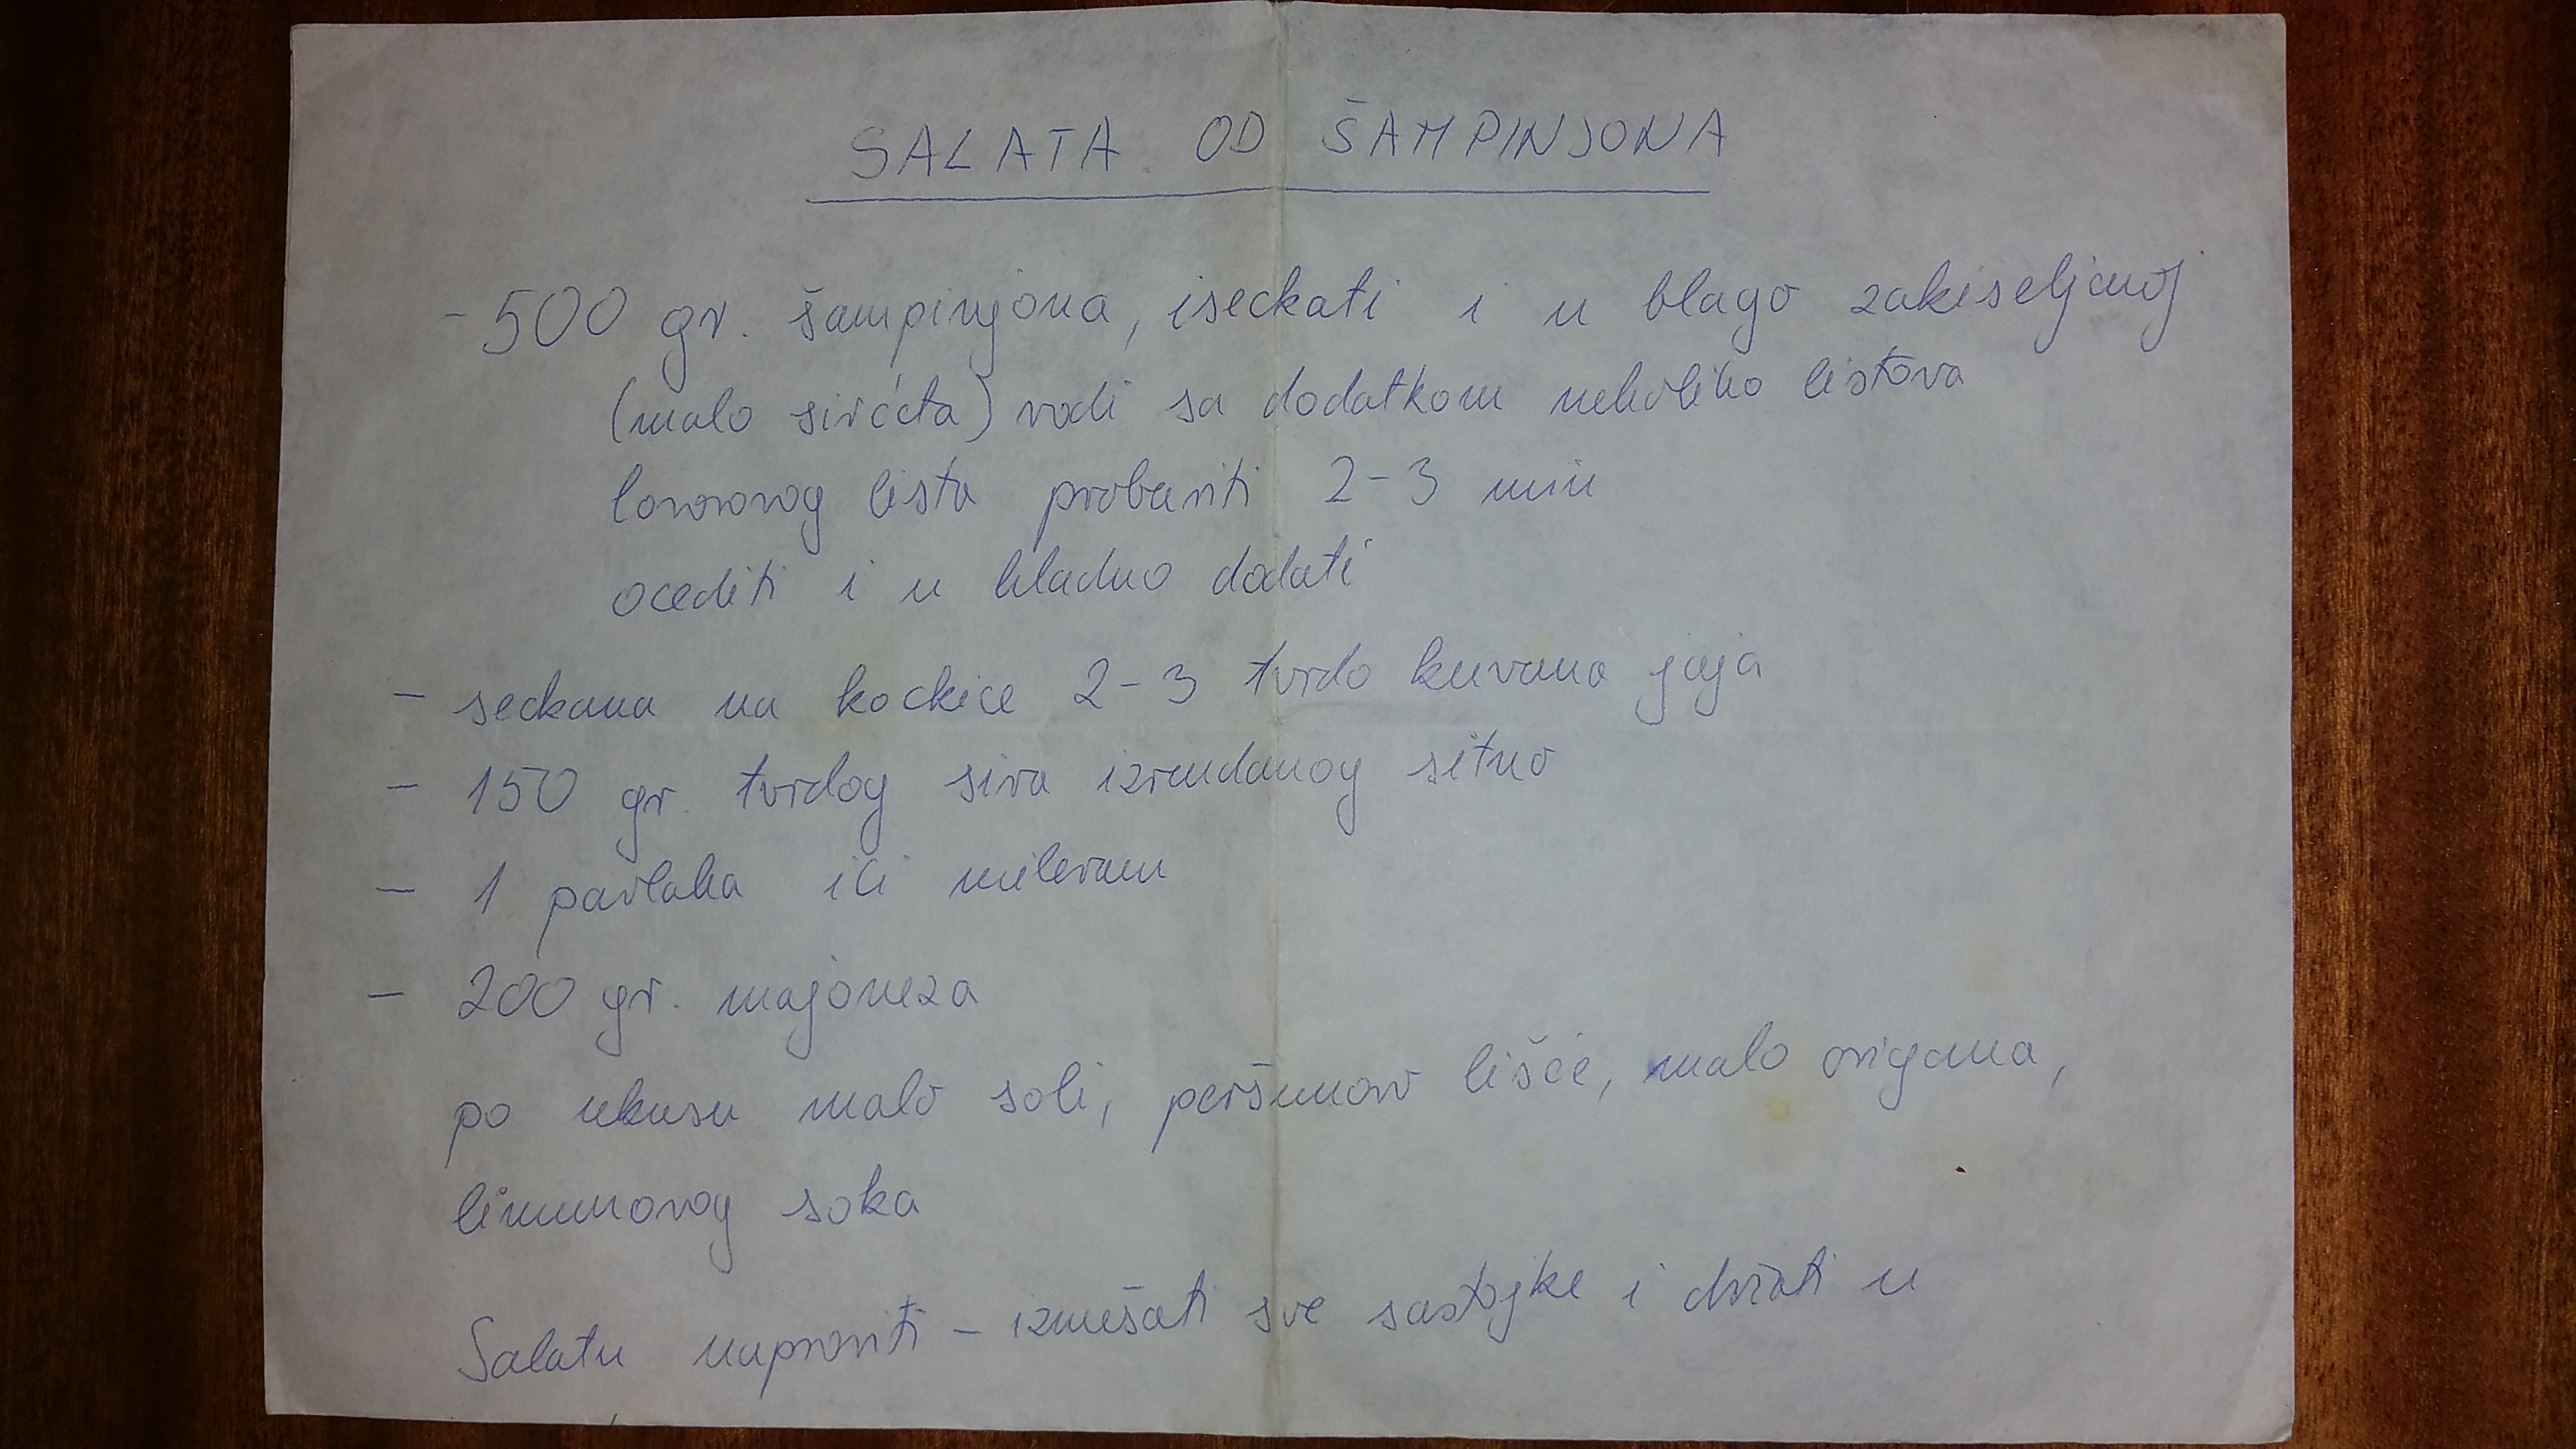 SALATA OD ŠAMPINJONA
- 500 gr. šampinjona, iseckati i u blago zakiseljenoj
(malo sirćeta) vodi sa dodatkom nekoliko listova
lovorovog lista probariti 2-3 min
ocediti i u hladno dodati
- seckana na kockice 2-3 tvrdo kuvana jaja
- 150 gr. tvrdog sira izrendanog sitno
- 1 pavlaka ili mileram
- 200 gr. majoneza
po ukusu malo soli, peršunov lišće, malo origana,
limunovog soka
Salatu napraviti - izmešati sve sastojke i držati u